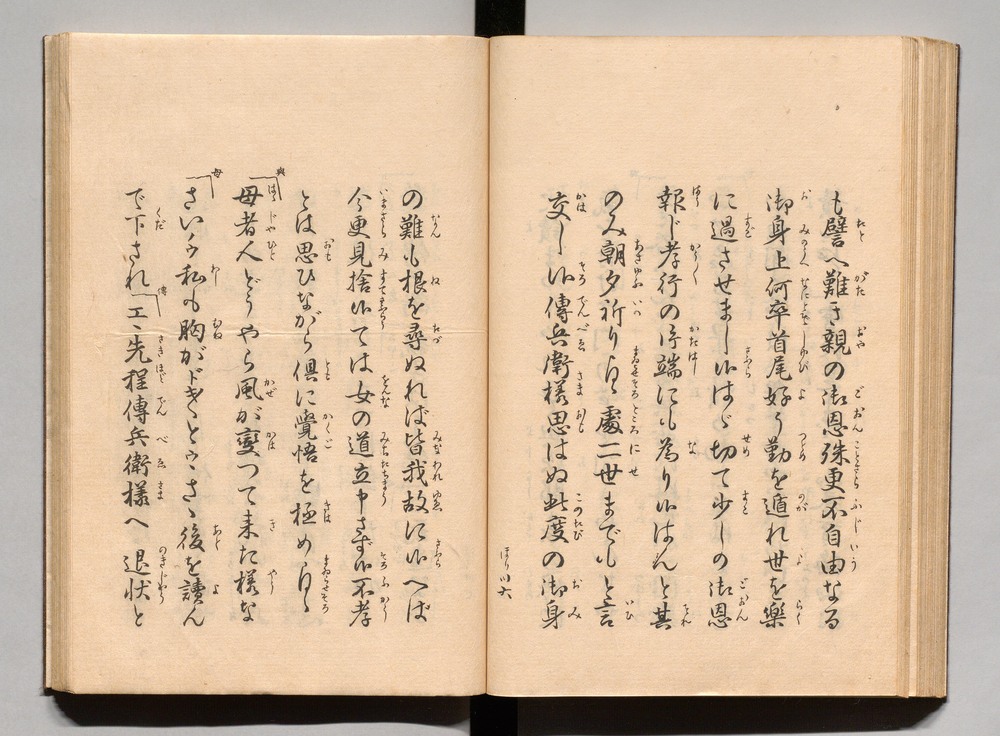 も譬へ難き親の御恩殊更不自由なる
御身上何卒首尾好う勤を遁れ世を樂
に過させましたく候はゞ切て少しの御恩
報じ孝行の片端にも為り候はんと其
のみ朝夕祈り処二世までもと言
交し候傳兵衞様思はぬ此度の御身
ほり川 六
の難も根を尋ぬれば皆我故に候へば
今更見捨候ては女の道立申さず候不孝
とは思ひながら倶に覺悟を極め
與
母者人どうやら風が變つて来た様な
母
さいナウ私も胸がドキ〳〵とウさゝ後を讀ん
で下され
傳
エヽ先程傳兵衛様へ退状と